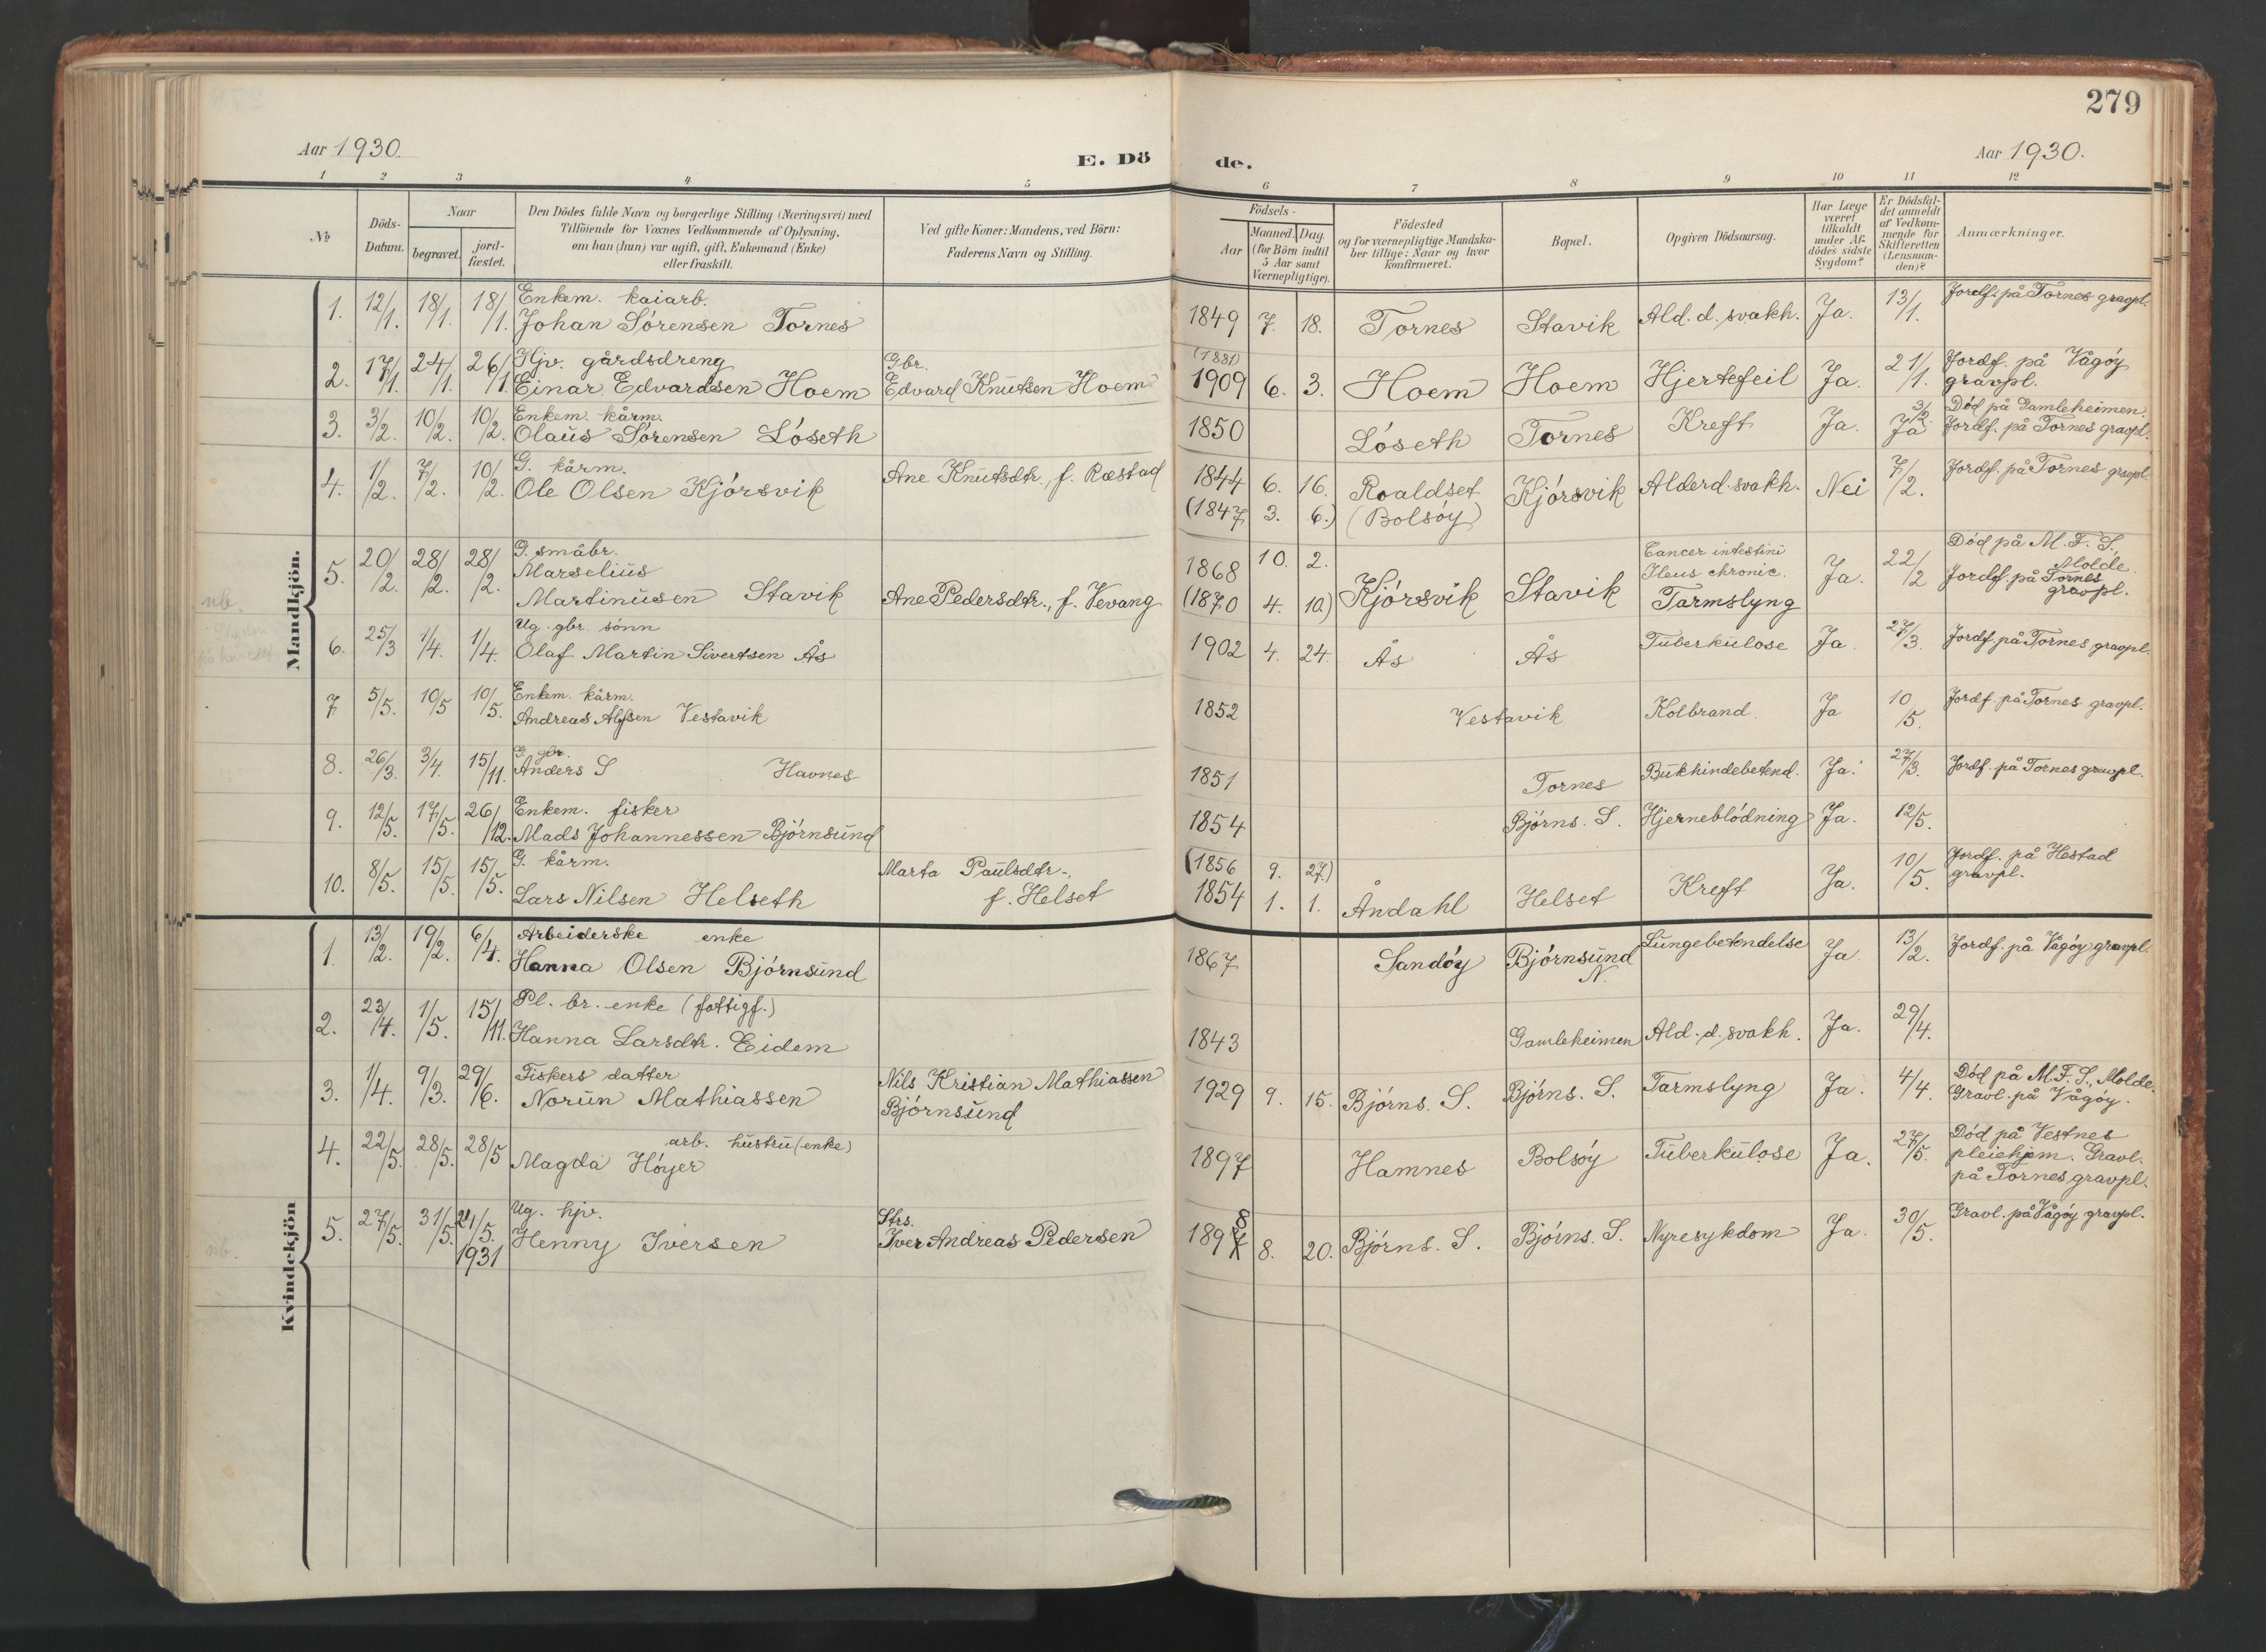 279
Aar 1930.
E. Dö de.
Aar 1930.
1 2 3 4 5 6 7 8 9 10 11 12
№
Döds-Datum.
Naar
begravet.
jord-fæstet.
Den Dödes fulde Navn og borgerlige Stilling (Næringsvei) med
Tilföiende for Voxnes Vedkommende af Oplysning,
om han (hun) var ugift, gift, Enkemand (Enke)
eller fraskilt.
Ved gifte Koner: Mandens, ved Börn:
Faderens Navn og Stilling.
Födsels-
Aar
Maaned. Dag.
(for Börn indtil
5 Aar samt
Værnepligtige).
Födested
og for værnepligtige Mandska-
ber tillige: Naar og hvor
konfirmeret.
Bopæl.
Opgiven Dödsaarsag.
Har Læge
været
tilkaldt
under Af-
dödes sidste
Sygdom?
Er Dödsfal-
det anmeldt
af Vedkom-
mende for
Skifteretten
(Lensman-
den)?
Anmærkninger.
Mandkjön.
1. 12/1. 18/1. 18/1. Enkem. kaiarb.
Johan Sörensen Tornes 1849 7. 18. Tornes Stavik Ald. d. svakh. Ja. 13/1. Jordf. på Tornes gravpl.
2. 17/1. 24/1. 26/1 Hjv. gårdsdreng
Einar Edvardsen Hoem Gbr.
Edvard Knutsen Hoem (1881)
1909 6. 3. Hoem Hoem Hjertefeil Ja. 21/1. Jordf. på Vågöy
gravpl.
3. 3/2. 10/2. 10/2. Enkem. kårm.
Olaus Sörensen Löseth 1850 Löseth Tornes Kreft Ja. 3/2.
Ja Död på Gamleheimen.
Jordf. på Tornes gravpl.
4. 1/2. 7/2. 10/2. G. kårm.
Ole Olsen Kjörsvik Ane Knutsdtr., f. Ræstad 1844 6. 16.
(1847 3. 6.) Roaldset
(Bolsöy) Kjörsvik Alderd. svakh. Nei 7/2. Jordf. på Tornes gravpl.
5. 20/2. 28/2. 28/2. G. småbr.
Marselius
Martinusen Stavik Ane Pedersdtr., f. Vevang 1868 10. 2.
(1870 4. 10.) Kjörsvik Stavik Cancer intestini
Ileus chronic.
Tarmslyng Ja. 22/2 Död på M. F. S.
Molde.
Jordf. på Tornes
gravpl.
nb.
6. 25/3 1/4. 1/4. Ug. gbr. sönn
Olaf Martin Sivertsen Ås 1902 4. 24. Ås Ås Tuberkulose Ja. 27/3. Jordf. på Tornes gravpl.
7 5/5. 10/5 10/5. Enkem. kårm.
Andreas Alfsen Vestavik 1852 Vestavik Kolbrand. Ja 10/5. Jordf. på Tornes gravpl.
8. 26/3. 3/4. 15/11. G. gbr.
Anders S Havnes 1851 Tornes Bukhindebetend. Ja. 27/3. Jordf. på Tornes gravpl.
9. 12/5. 17/5. 26/12. Enkem. fisker
Mads Johannessen Björnsund 1854 Björns. S. Hjerneblödning Ja. 12/5.
10. 8/5. 15/5. 15/5. G. kårm.
Lars Nilsen Helseth Marta Paulsdtr.,
f. Helset (1856 9. 27.)
1854 1. 1. Åndahl Helset Kreft Ja. 10/5. Jordf. på Hestad
gravpl.
Kvindekjön
1. 13/2. 19/2. 6/4. Arbeiderske enke
Hanna Olsen Björnsund 1867 Sandöy Björnsund
N. Lungebetendelse Ja. 13/2. Jordf. på Vågöy gravpl.
2. 23/4. 1/5. 15/11. Pl. br. enke (fattigf.)
Hanna Larsdtr. Eidem 1843 Gamleheimen Ald. d. svakh. Ja. 29/4.
3. 1/4. 9/3. 29/6. Fiskers datter
Norun Mathiassen Nils Kristian Mathiassen
Björnsund 1929 9. 15. Björns. S. Björns. S. Tarmslyng Ja. 4/4. Död på M. F. S., Molde.
Gravl. på Vågöy.
4. 22/5. 28/5. 28/5 arb. hustru (enke)
Magda Höyer 1897 Hamnes Bolsöy Tuberkulose Ja. 27/5. Död på Vestnes
pleiehjem. Gravl.
på Tornes gravpl.
nb.
5. 27/5. 31/5. 21/5.
1931 Ug. hjv.
Henny Iversen Strs.
Iver Andreas Pedersen 1898 8. 20. Björns. S. Björns. S. Nyresykdom Ja. 30/5. Gravl. på Vågöy gravpl.